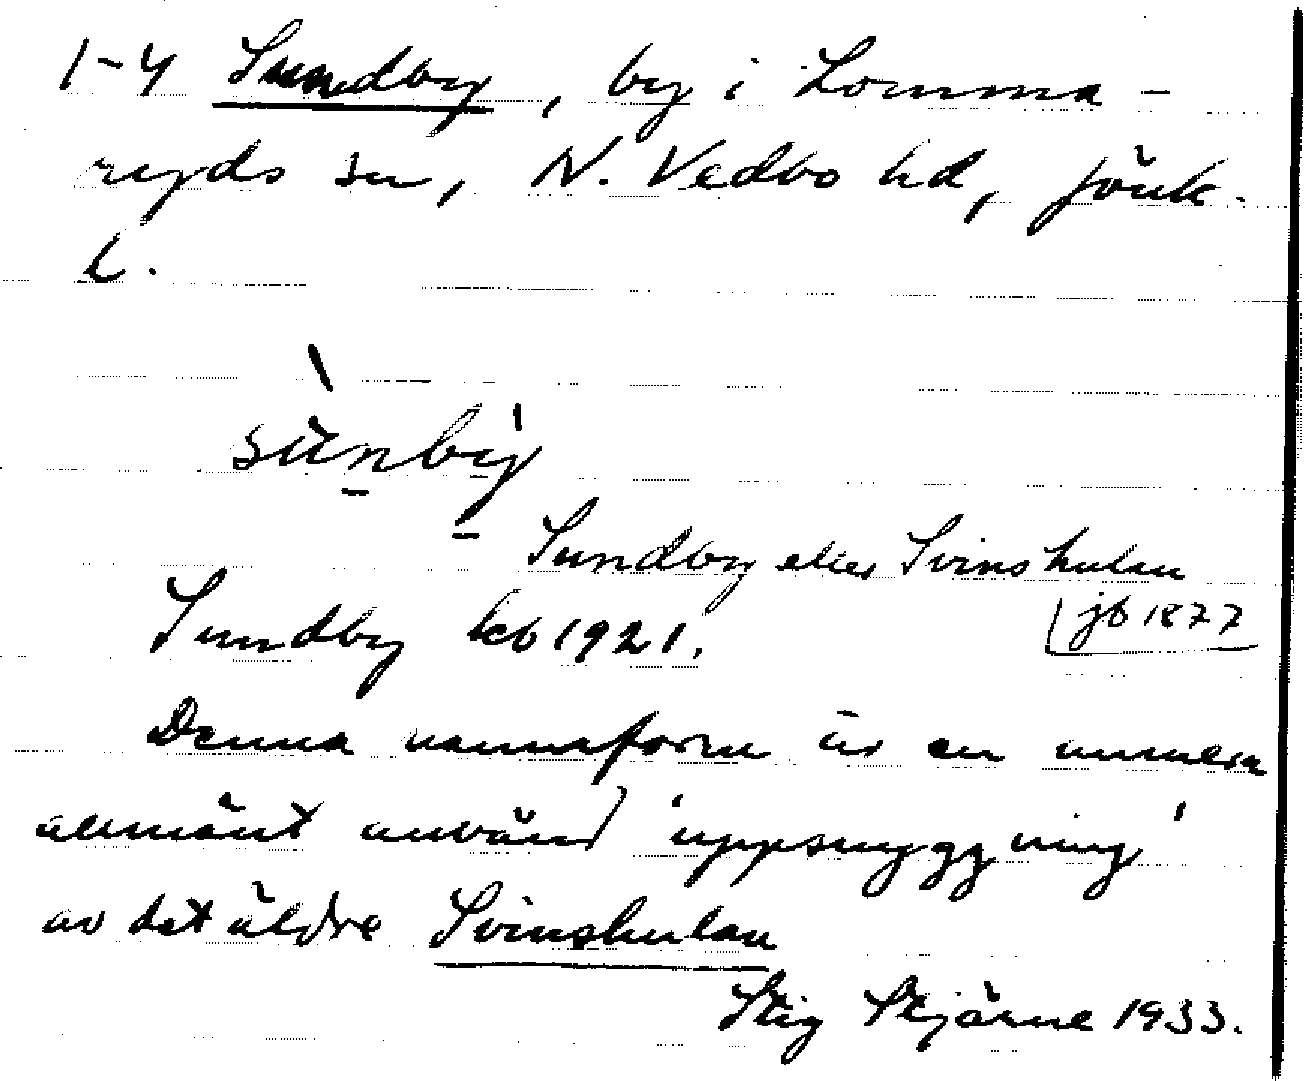 1-4 Sundby, by i Lomma-
ryds sn, N. Vedbo hd, Jönk.
l.
sùnbẏ
Sundby eller Svinshulan
jb 1877
Sundby kb 1921.
Denna namnform är en numera
allmänt använd 'uppsnyggning'
av det äldre Svinshulan
Stig Stjärne 1933.